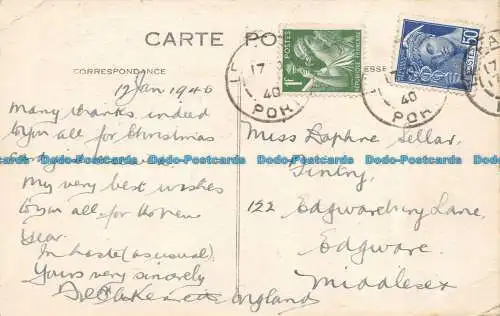 CARTE PO
CORRESPONDANCE
12 Jan 1940
Many thanks indeed
to you all for Christmas
My very best wishes
to you all for the New
Year.
In haste (as usual).
Yours very sincerely
Miss Daphne Sellar,
122 Edgwarebury Lane,
Edgware.
Middlesex
England
POSTES
1F
REPUBLIQUE FRANCAISE
50
17
40
POR
17
40
POR
Dodo-Postcards Dodo-Postcards Dodo-Postcards Dodo-Postcards